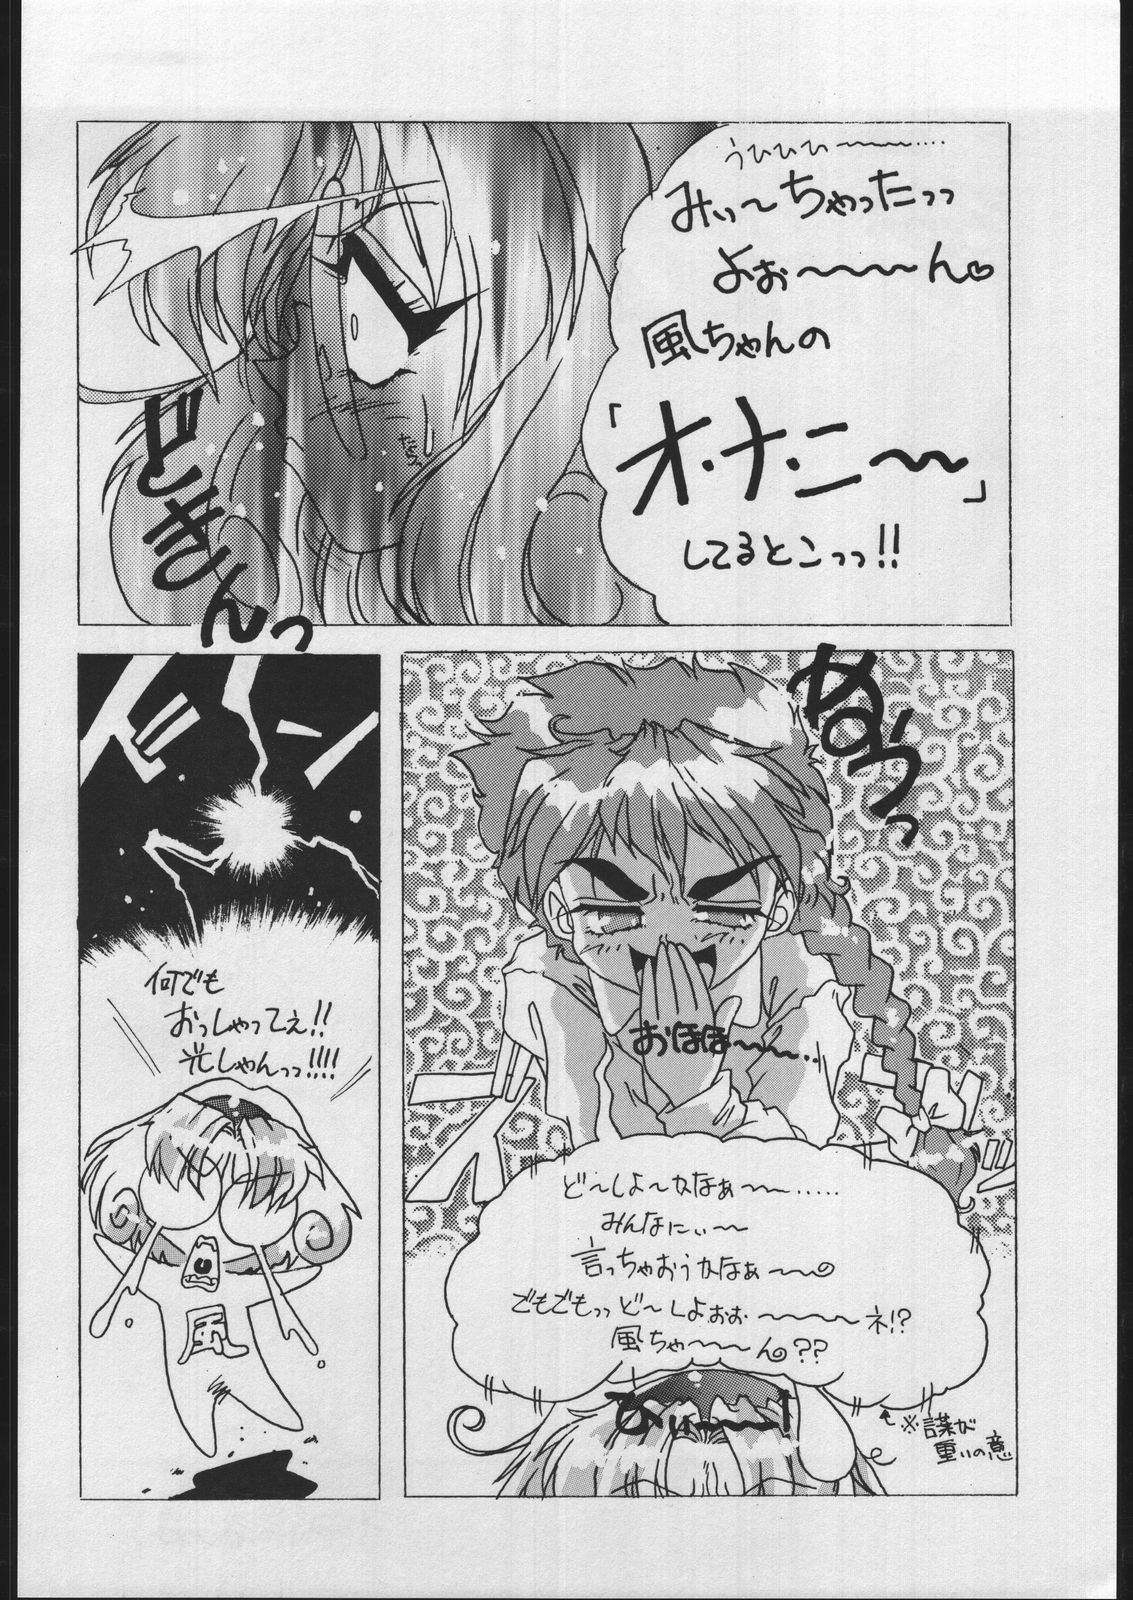 うひひひ～～～‥‥
みぃ～ちゃったっっ
よぉ～～～～ん♡
風ちゃんの
「オ・ナ・ニ～～」
してるとこっっ!!
どきんっ
たらっ
ぬうっっ
おほほ～～～‥
ど～しよ～かなぁ～～‥‥‥
みんなにぃ～～
言っちゃおうかなぁ～～
でもでもっっど～しよぉぉ～～～～ネ!?
風ちゃ～～～ん??
ひぃ～～～!
ドーン
何でも
おっしゃってぇ!!
光しゃんっっ!!!!
風